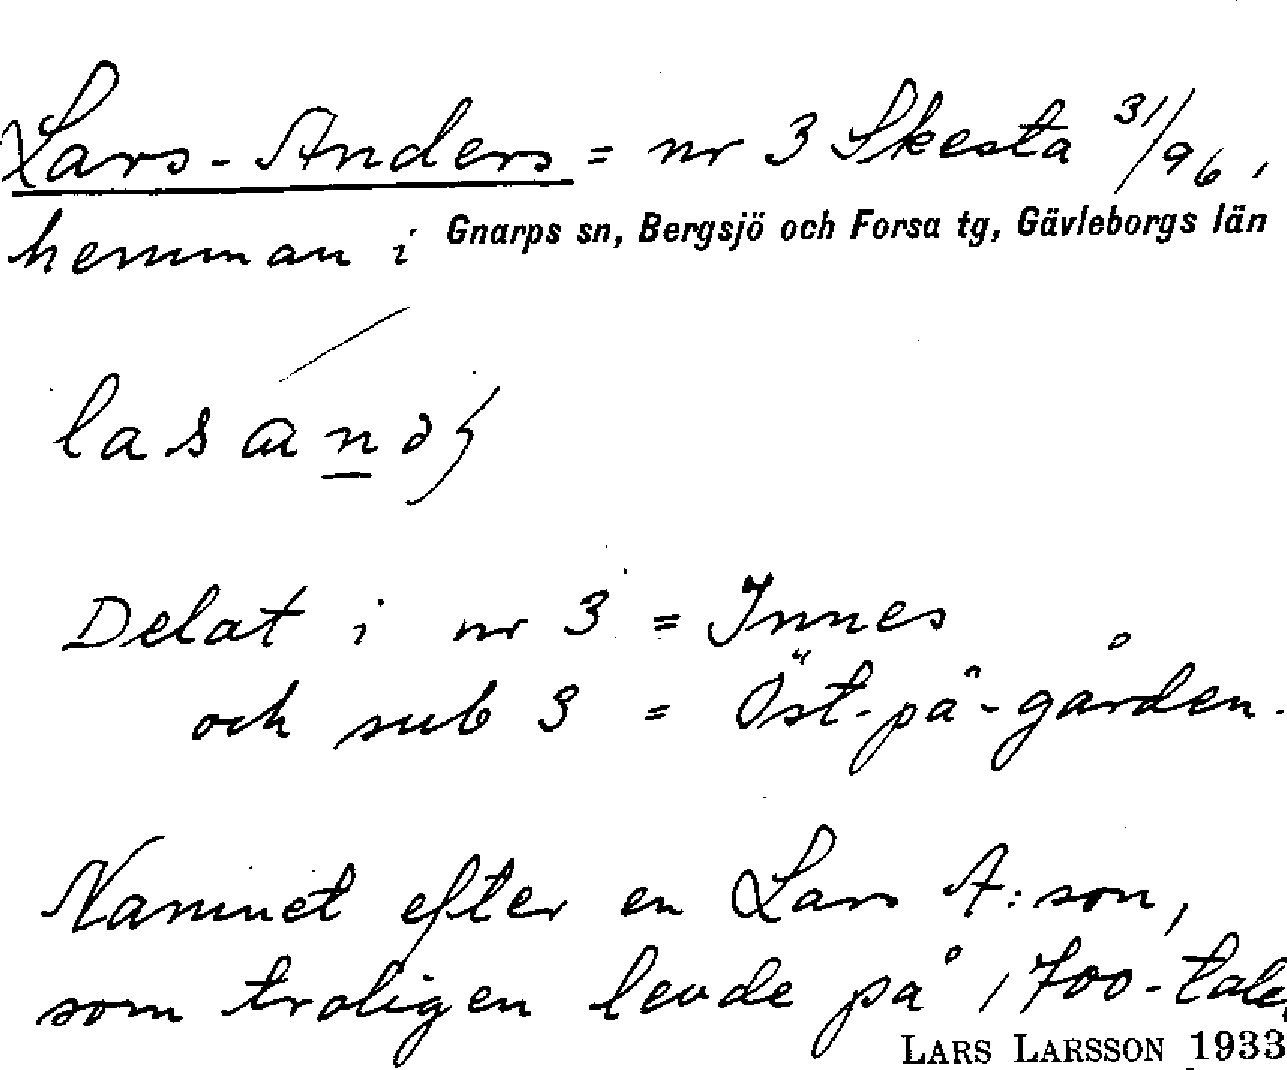 Lars-Anders = nr 3 Skesta 31/96,
hemman i Gnarps sn, Bergsjö och Forsa tg, Gävleborgs län
Delat i nr 3 = Innes
och sub 3 = Öst-på-gården.
Namnet efter en Lars A:son,
som troligen levde på 1700-tale
LARS LARSSON 1933